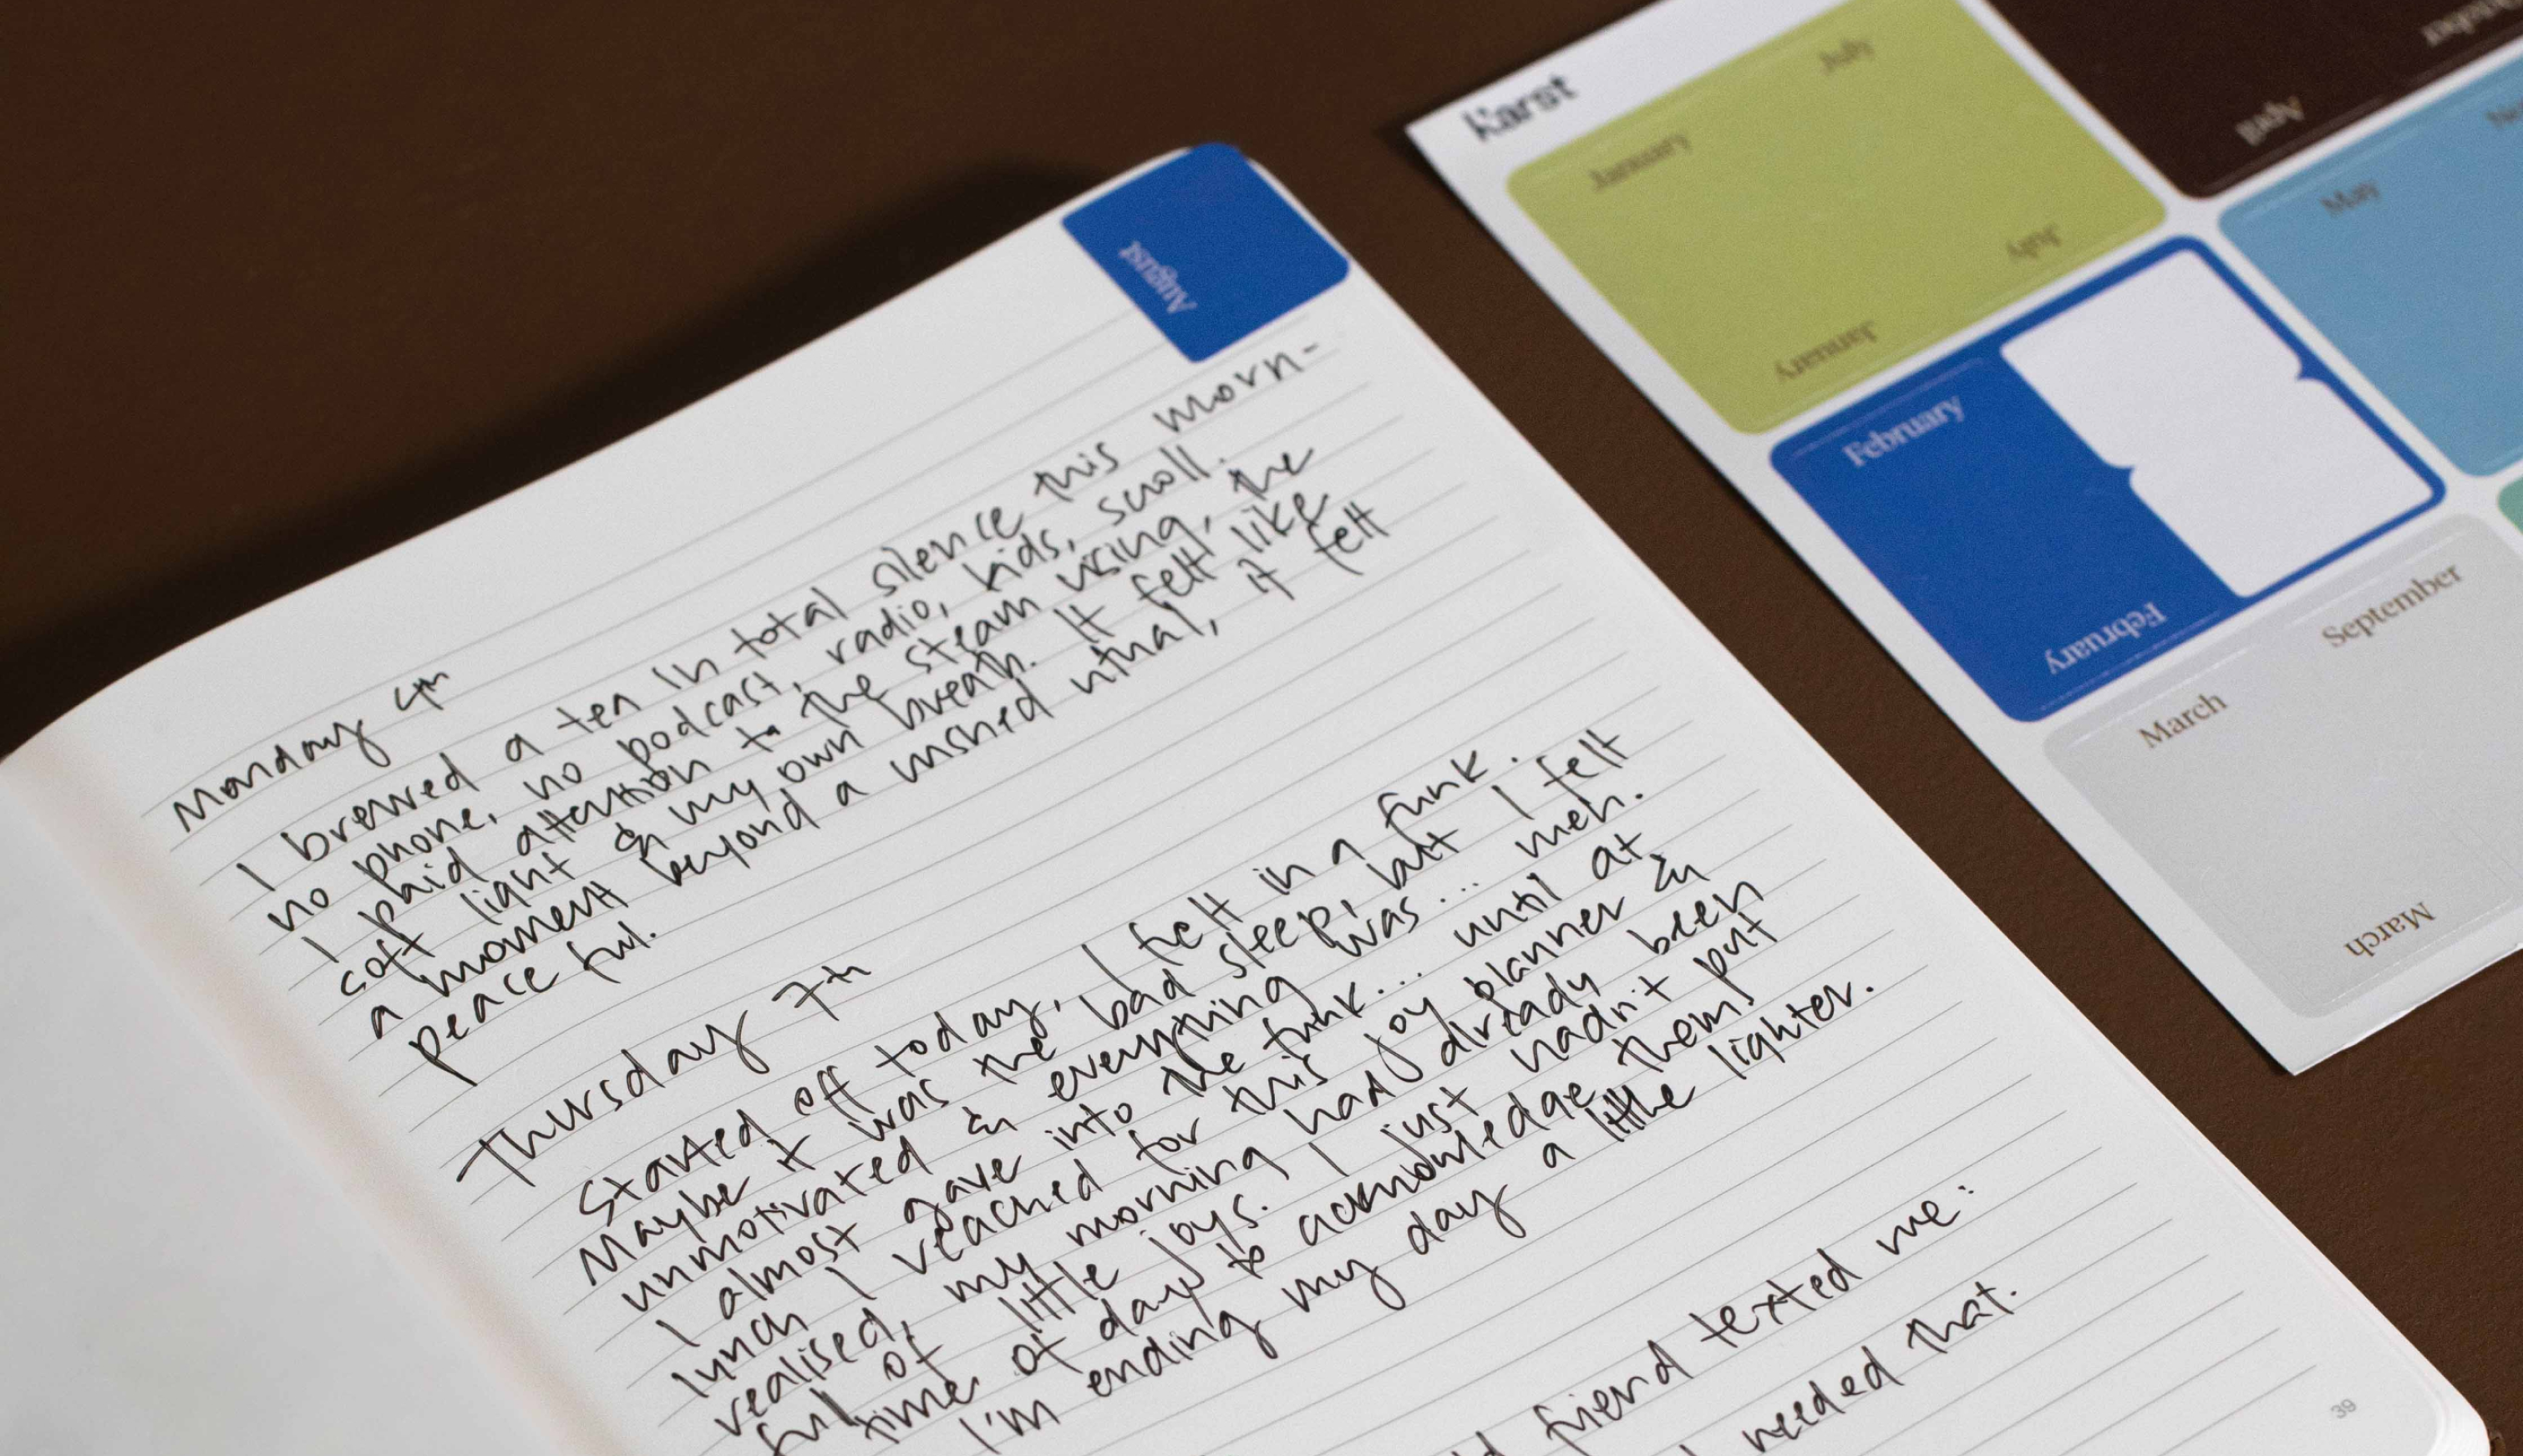 August
Monday 4th
I brewed a tea in total silence this morn-
no phone, no podcast, radio, kids, scroll.
I paid attention to the steam rising, the
soft light & my own breath. It felt like
a moment beyond a rushed ritual, it felt
peaceful.
Thursday 7th
Started off today, I felt in a funk.
Maybe it was the bad sleep, but I felt
unmotivated & everything was... meh.
I almost gave into the funk... until at
lunch I reached for this joy planner &
realised, my morning had already been
full of little joys. I just hadn't put
time of day to acknowledge them!
I'm ending my day a little lighter.
friend texted me:
needed that.
39
Karst
January
July
January
July
April
May
February
February
March
September
March